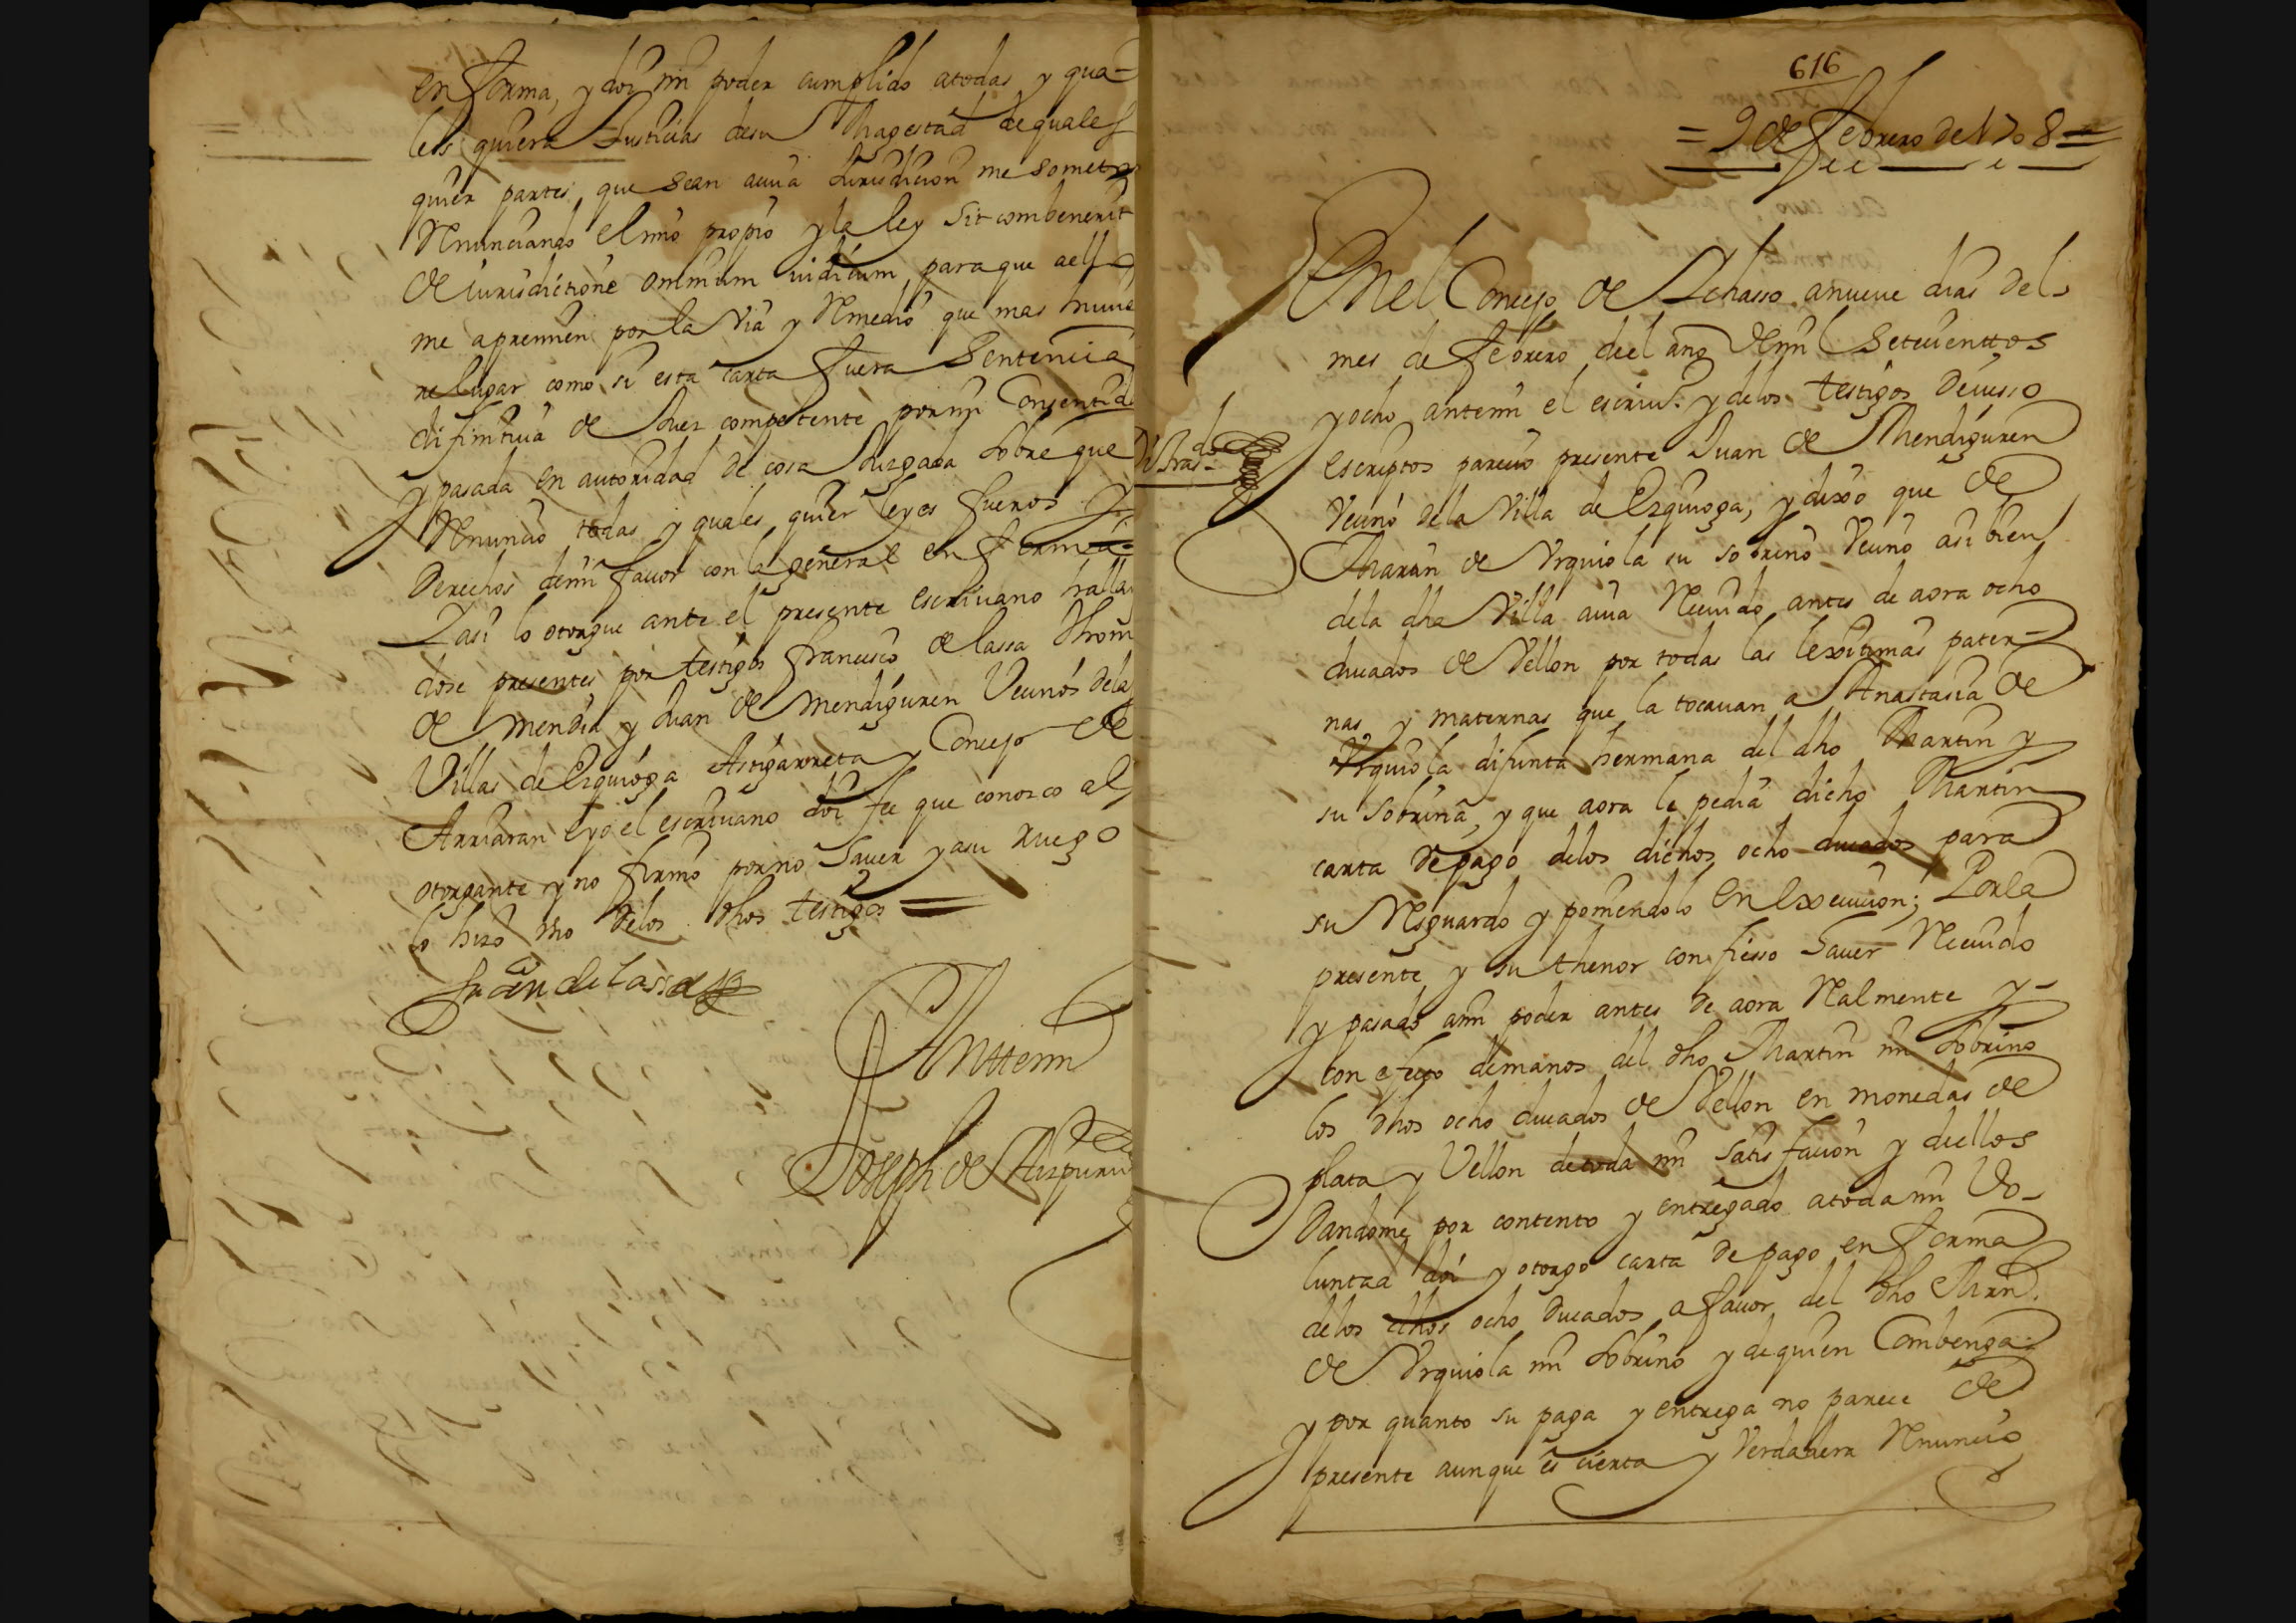 en forma, y doi mi poder cumplido atodas y qua-
les quiera Justicias desu Magestad de quales
quier partes que sean acuia Jurisdicion me someto
Renunciando el mio propio y la ley Sit combenerit
de iurisdictione omnium iudicum, para que aello
me apremien por la via y Remedio que mas huvie
re lugar como si esta carta fuera Sentencia
difinitiva de Juez competente por mi Consentida
y pasada en autoridad de cosa Juzgada sobre que
Renuncio todas y quales quier leyes fueros y
Derechos demi favor con la general en forma
Y asi lo otorgue ante el presente escrivano hallan
dose presentes por testigos francisco de lassa Thom
de Mendia y Juan de Mendiguren Vecinos dela
Villas de Ezquioga Astigarreta y Concejo de
Arriaran e yo el escrivano doi fee que conozco al
otorgante y no firmo por no Saver y asu ruego
lo hizo vno delos dhos testigos =
fran.co de Lassa
Anttemi
Joseph de Aizpuru
616
= 9 de febrero de 1708 =
En el Concejo de Ichasso anueve dias del
mes de febrero del año de mil Setecienttos
y ocho antemi el escriu.o y delos testigos deiusso
escriptos parecio presente Juan de Mendiguren
Vecino dela Villa de Ezquioga, y dixo que de
Martin de Vrquiola su sobrino Vecino asi bien
dela dha Villa avia Recivido antes de aora ocho
ducados de Vellon por todas las lexitimas pater-
nas y maternas que la tocavan a Anastasia de
Vrquiola difunta hermana del dho Martin y
su Sobrina, y que aora le pedia dicho Martin
carta de pago delos dichos ocho ducados para
su Resguardo y poniendolo en execucion; Por la
presente y su thenor confiesso haver Recivido
y pasado ami poder antes de aora Realmente y-
con efecto demanos del dho Martin mi sobrino
los dhos ocho ducados de Vellon en monedas de
plata y Vellon detoda mi satisfacion y dellos
Dandome por contento y entregado atoda mi Vo-
luntad doi y otorgo carta de pago en forma
delos dhos ocho Ducados a favor del dho Mrn.
de Vrquiola mi sobrino y de quien Combenga
y por quanto su paga y entrega no parece de
presente aunque es cierta y Verdadera Renuncio